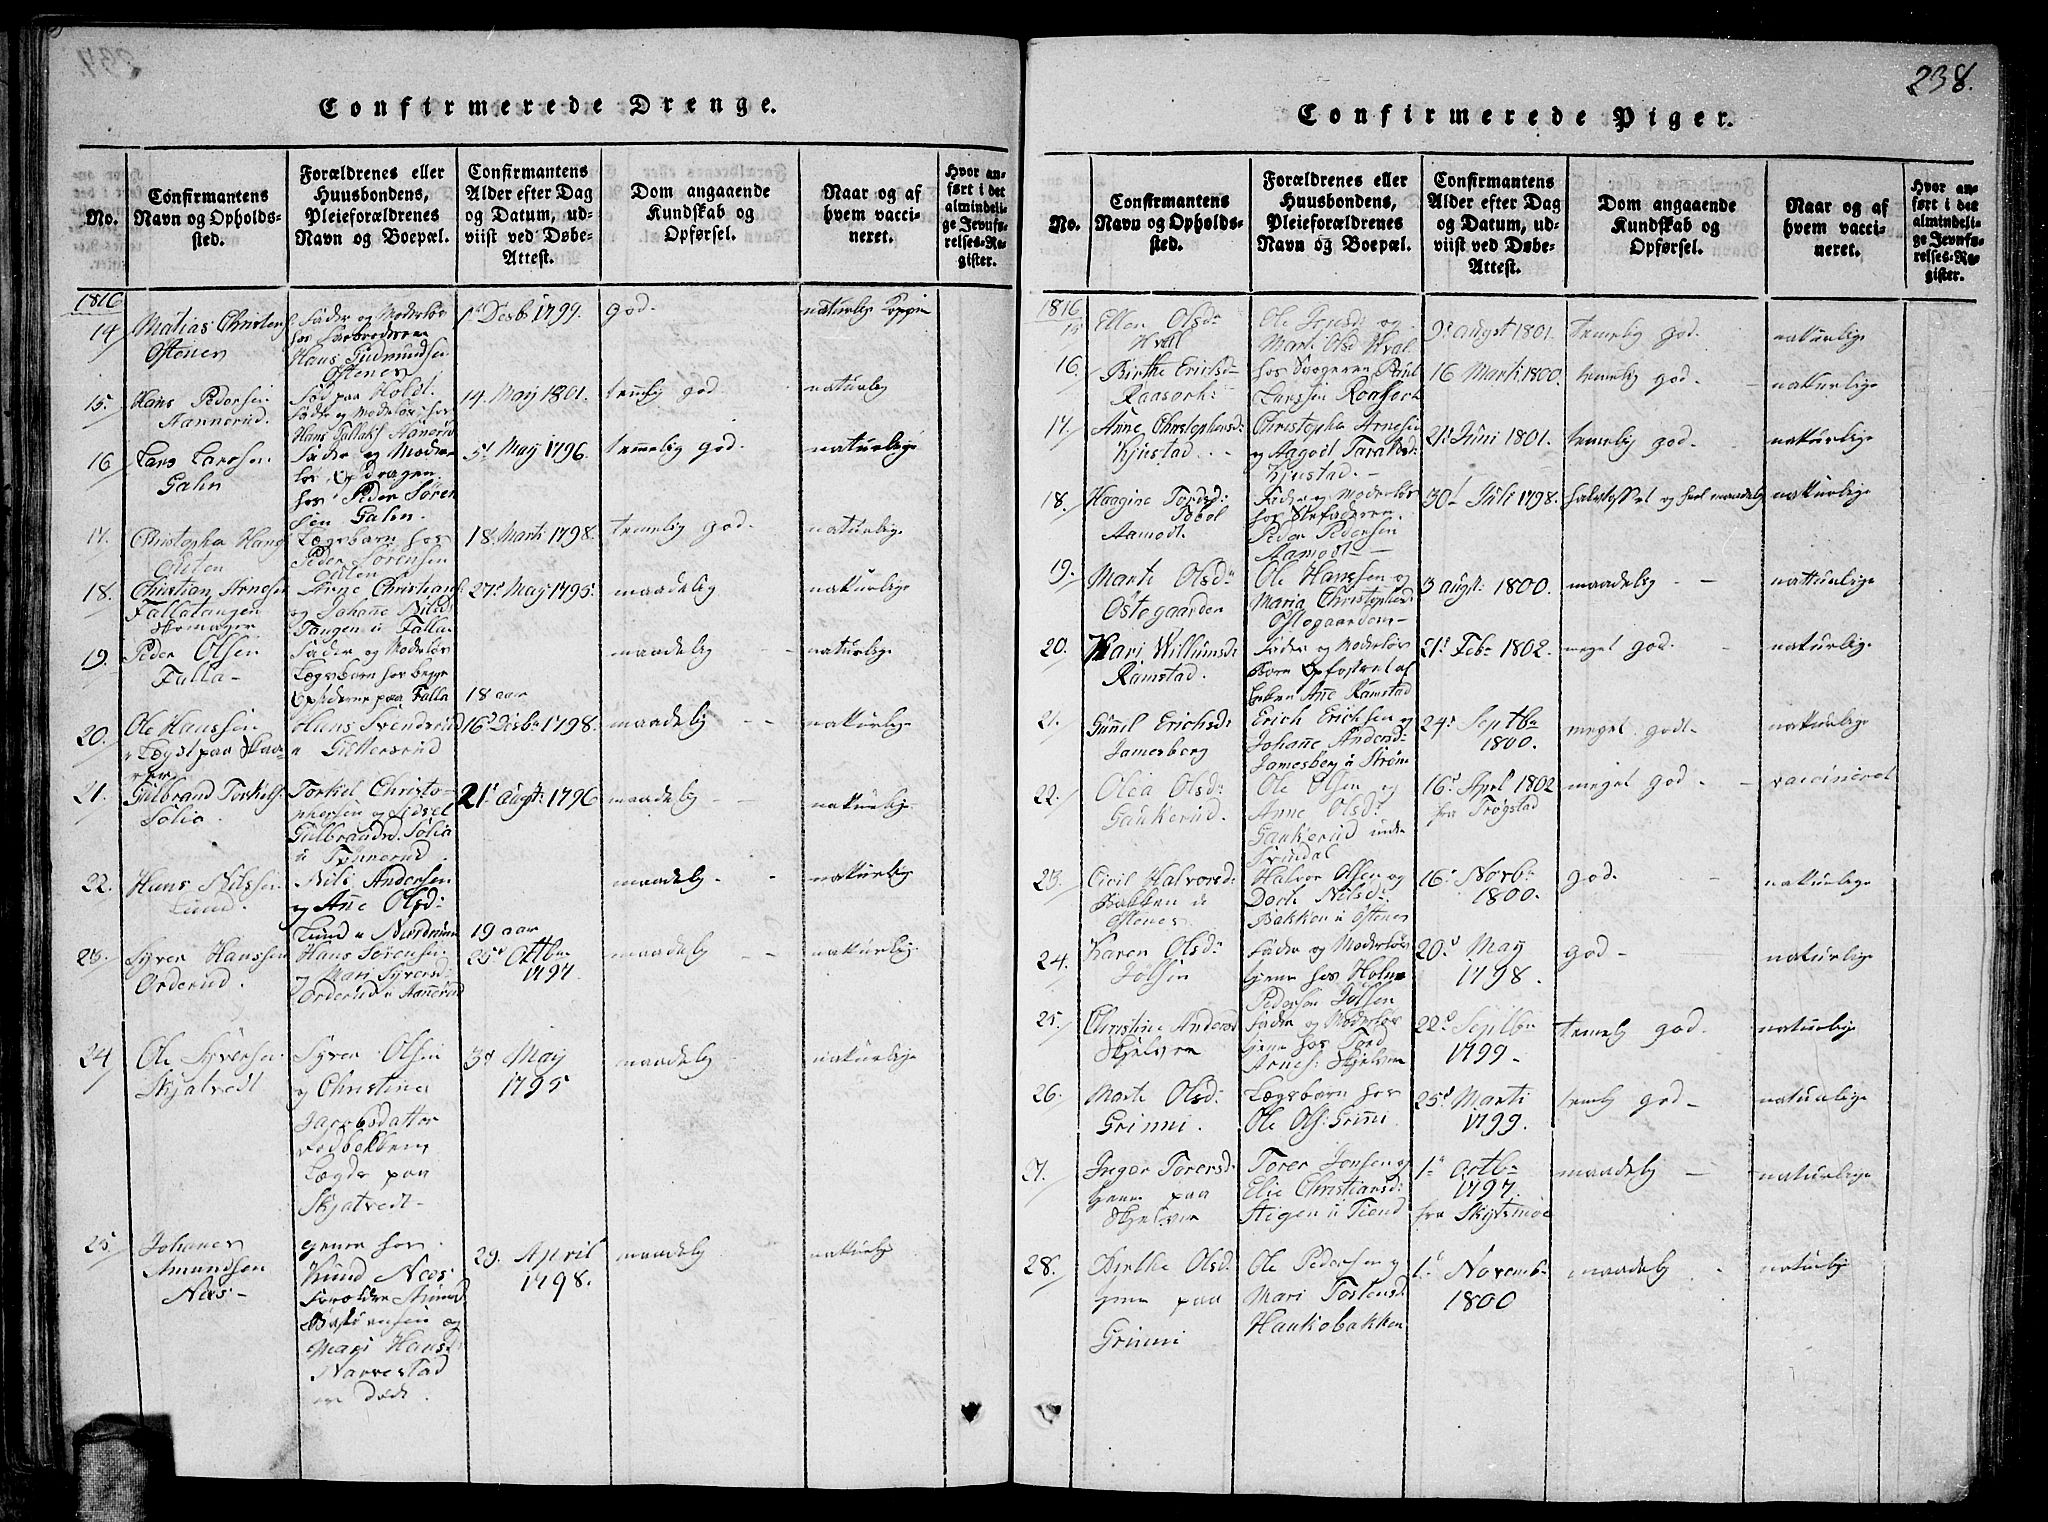 238.
Confirmerede Drenge.
No.
Confirmantens
Navn og Opholds-
sted.
Forældrenes eller
Huusbondens,
Pleieforældrenes
Navn og Boepæl.
Confirmantens
Alder efter Dag
og Datum, ud-
viist ved Døbe-
Attest.
Dom angaaende
Kundskab og
Opførsel.
Naar og af
hvem vacci-
neret.
Hvor an-
ført i det
almindeli-
ge Jevnfø-
relses-Re-
gister.
1816
14
Matias Christens
Østenes
Fader og Moderløs
hos Farbroderen
Hans Gudmundsen
Østenes
1d Desb 1799.
god.
naturlig Kopper
15.
Hans Pedersen
Hannerud.
Fød paa Holdt
Fader og Moderløs, hos
Hans Hanerud
14 May 1801.
temelig god
naturlig
16
Lars Larssen
Galen
Fader og Moder-
løs, Opdragen
hos Peder Søren
sen Galen.
5d May 1796.
temmelig god
naturlige
17.
Christopher Hans
Østen
Lægsbarn hos
Peder Sørensen
Østen
18. Marti 1798.
temelig god
naturlig
18.
Christian Arnesen
Fallatangen
Skomager
Arne Christians
og Johanne Nilsd
Tangen u Falla
27d May 1795.
maadelig
naturlige
19.
Peder Olsen
Falla
Fader og Moderløs
Lægsbarn hos begge
Opsiderne paa Falla
18 aar
maadelig
naturlige
20.
Ole Hanssen
Lægst paa Skaa-
rer
Hans Svendsrud
u Gittersrud
16d Desbr 1798.
maadelig
naturlige
21.
Gulbrand Torkels
Solia
Torkel Christo-
phersen og Sidsel
Gulbrandsd. Solia
u Tønnerud
21d Augst: 1796
maadelig
naturlig
22.
Hans Nilssen
Lund.
Nils Andersen
og Anne Olsd:
Lund u Nordrum
19 aar
maadelig
naturlig
23.
Syver Hanssen
Orderud.
Hans Sørensen
og Mari Syversd:
Orderud u Hannerud
25d Octbr
1797.
maadelig
naturlig
24
Ole Syversen
Skjatvedt
Syver Olsen
og Christine
Jacobsdatter
Vedbakken
Lægds paa
Skjatvedt
3d May
1795
maadelig
naturlige
25
Johannes
Amundsen
Næs
tjener hos
Knud Næs
Forældre Amund
og
Mari Hansd:
Narvestad
er døde.
29. April
1798.
maadelig
naturlig
Confirmerede Piger.
No.
Confirmantens
Navn og Opholds-
sted.
Forældrenes eller
Huusbondens,
Pleieforældrenes
Navn og Boepæl.
Confirmantens
Alder efter Dag
og Datum, ud-
viist ved Døbe-
Attest.
Dom angaaende
Kundskab og
Opførsel.
Naar og af
hvem vacci-
neret.
Hvor an-
ført i det
almindeli-
ge Jevnfø-
relses-Re-
gister.
1816
15
Ellen Olsdr
Hval
Ole og
Marti Olsd Hval
9d augst 1801.
temelig god.
naturlige
16.
Birthe Ericksdr
Raasok:
hos Svogeren Poul
Larssen Raasok
16 Marti 1800.
temelig god.
naturlige
17.
Anne Christophersd:
Kjustad
Christopher Arnesen
og Aagodt Taraldsd:
Kjustad.
21d Juni 1801.
temelig god
naturlige
18.
Haagine Tordsd:
Aamodt.
Fader og Moderløs
hos Stefaderen
Peder Pedersen
Aamodt
30d Juli 1798.
halvtosset og heel maadelig
naturlige
19.
Marti Olsdr
Østegaarden
Ole Hanssen og
Maria Christophersd:
Østegaarden
3 augst: 1800.
maadelig
naturlige
20.
Kari Willumsd:
Ramstad.
Fader og Moderløs
Barn Opfostret af
Enken Anne Ramstad
21d Febr 1802.
meget god.
naturlige
21.
Gunil Erichsd:
Jamesberg
Erich Erichsen og
Johanne Andersd:
Jamesberg u Strøm
24d Septbr
1800.
meget godt
naturlige
22.
Olea Olsd:
Gaukerud.
Ole Olsen og
Anne Olsd:
Gaukerud under
Svindal
16d Aprl 1802
fra Trøgstad
meget god
vaccineret
23.
Civil Halvorsd:
Bakken u
Østenes
Halvor Olsen og
Dorte Nilsd:
Bakken u Østenes
16d Novbr
1800.
god.
naturlige
24.
Karen Olsdr
Jølsen
Fader og Moderløs
tjener hos Holm
Pedersen Jølsen
20d May
1798.
god
naturlige
25.
Christine Andersd
Skjelven
Fader og Moderløs
tjener hos Tord
Arnes: Skjelven
22d Septbr
1799
temelig god
naturlige
26.
Marte Olsd:
Grinni.
Lægsbarn hos
Ole Ols: Grini
25d Marti
1799.
temelig god
naturlige
27.
Inger Torersd:
tjener paa
Skjelven
Torer Jonsen og
Elie Christiansd:
Stigen u Tiend
1d Octbr
1797.
fra Skytsmoe
maadelig
naturlige
28.
Birthe Olsd:
tjener paa
Grinni
Ole Pedersen og
Mari Tostensd:
Haukobakken
1d Novembr
1800
maadelig
naturlig